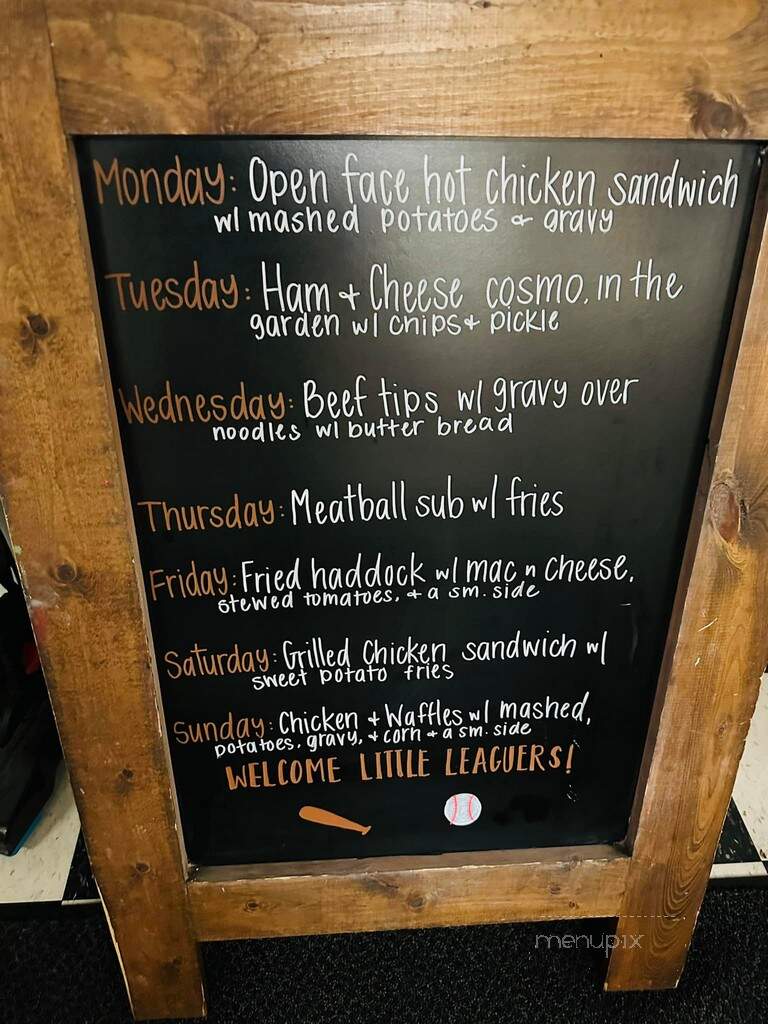 Monday: Open face hot chicken sandwich
w/ mashed potatoes & gravy
Tuesday: Ham & Cheese cosmo, in the
garden w/ chips & pickle
Wednesday: Beef tips w/ gravy over
noodles w/ butter bread
Thursday: Meatball sub w/ fries
Friday: Fried haddock w/ mac n cheese,
stewed tomatoes, & a sm. side
Saturday: Grilled Chicken sandwich w/
sweet potato fries
Sunday: Chicken & Waffles w/ mashed,
potatoes, gravy, & corn & a sm. side
WELCOME LITTLE LEAGUERS!
menupix